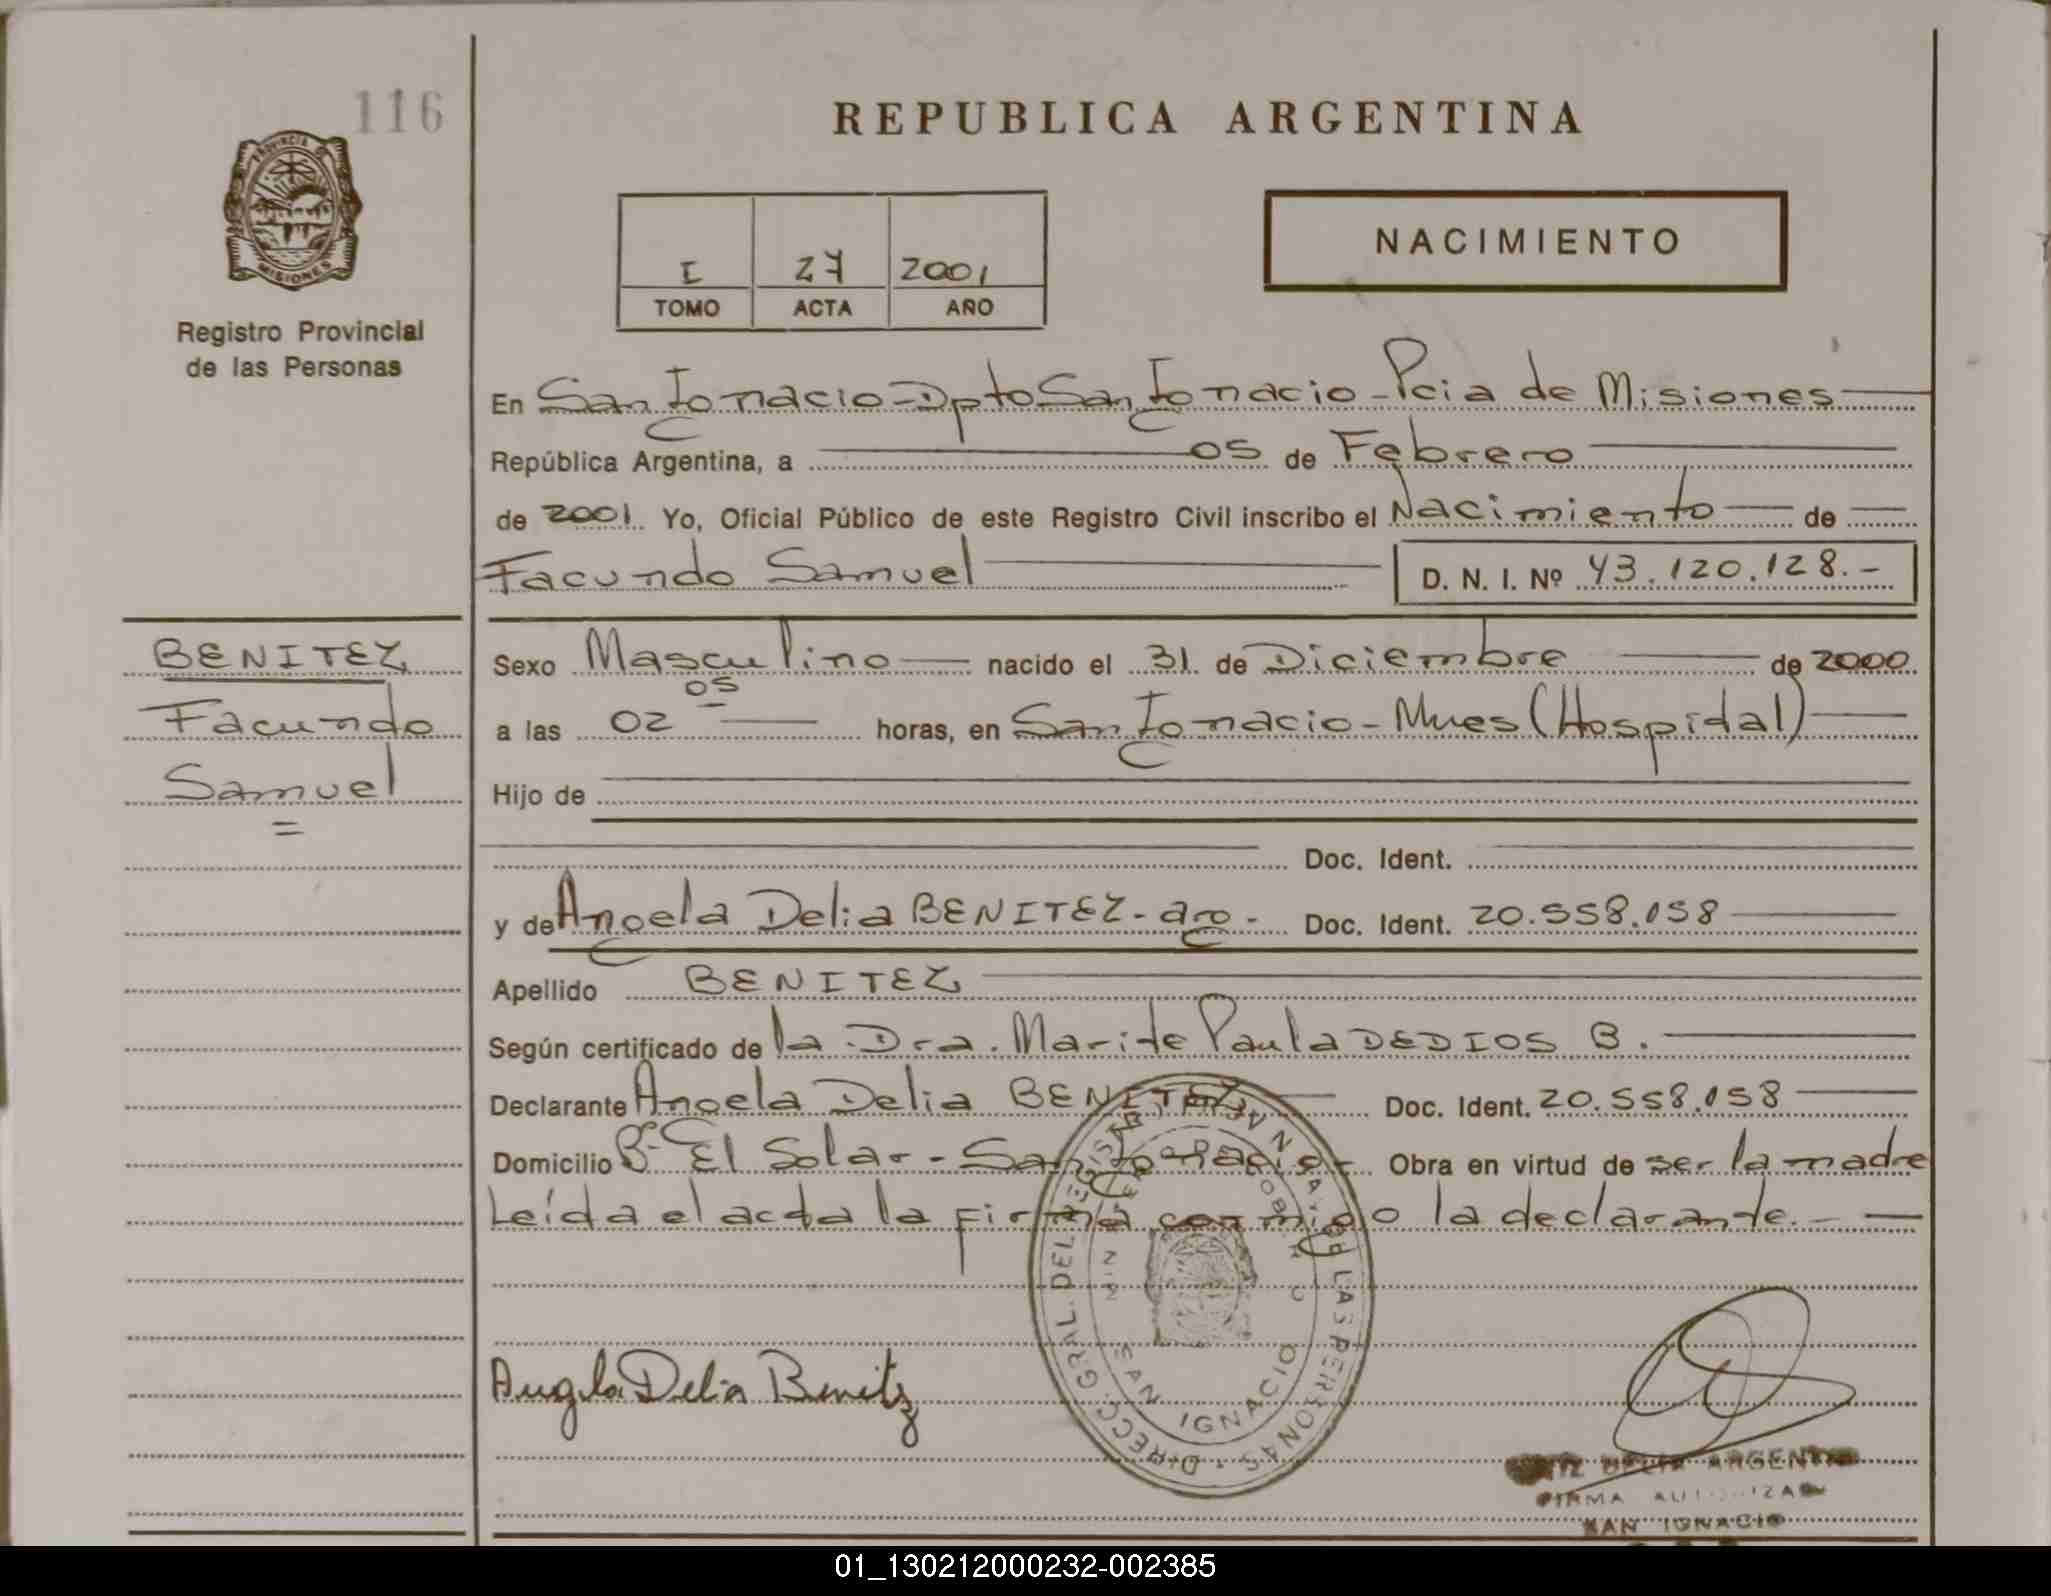 116
REPUBLICA ARGENTINA
PROVINCIA DE
MISIONES
Registro Provincial
de las Personas
I 27 2001
TOMO ACTA AÑO
NACIMIENTO
En San Ignacio - Dpto San Ignacio - Pcia de Misiones
República Argentina, a 05 de Febrero
de 2001. Yo, Oficial Público de este Registro Civil inscribo el Nacimiento de
Facundo Samuel D. N. I. Nº 43.120.128.-
BENITEZ
Facundo
Samuel
Sexo Masculino nacido el 31 de Diciembre de 2000
a las 02 05 horas, en San Ignacio - Mnes (Hospital)
Hijo de
Doc. Ident.
y de Angela Delia BENITEZ - arg - Doc. Ident. 20.558.158
Apellido BENITEZ
Según certificado de la Dra. Marite Paula DEDIOS B.
Declarante Angela Delia BENITEZ Doc. Ident. 20.558.158
Domicilio Bº El Solar - San Ignacio - Obra en virtud de ser la madre
Leída el acta la firma conmigo la declarante. -
Angela Delia Benitez
DIRECC. GRAL. DEL REGISTRO PROVINCIAL DE LAS PERSONAS
SAN IGNACIO
ARGENTI
FIRMA AUTORIZAD
SAN IGNACIO
01_130212000232-002385